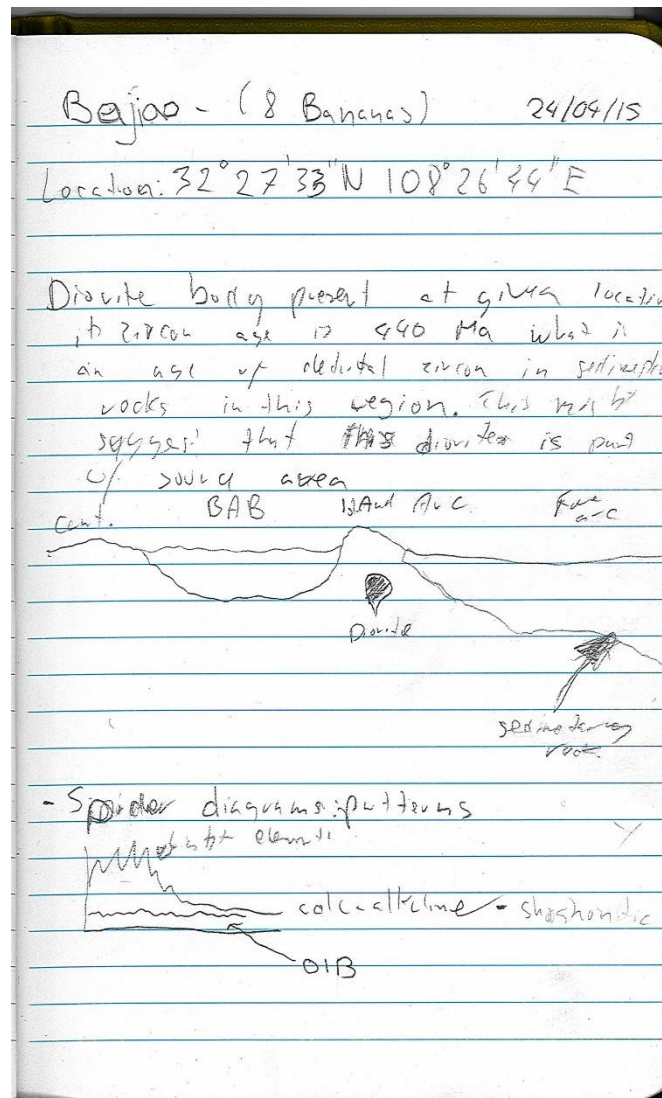 Bajiao - (8 Bananas) 24/04/15
Location: 32° 27' 33" N 108° 26' 44" E
Diorite body present at given location
its zircon age is 440 Ma what is
an age of detrital zircon in
rocks in this region. This might
suggest that this diorites is part
of source area
Cont. BAB Island Arc Fore
arc
Diorite
sedimentary
rock
- Spider diagrams: patterns
elements
calc-alkaline - shoshonitic
OIB